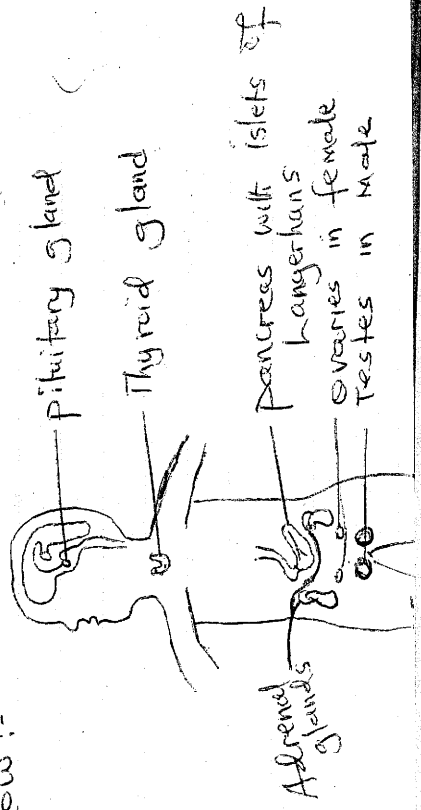 ow :-
pituitary gland
Thyroid gland
pancreas with islets of
Langerhans
ovaries in female
Testes in Male
Adrenal
glands